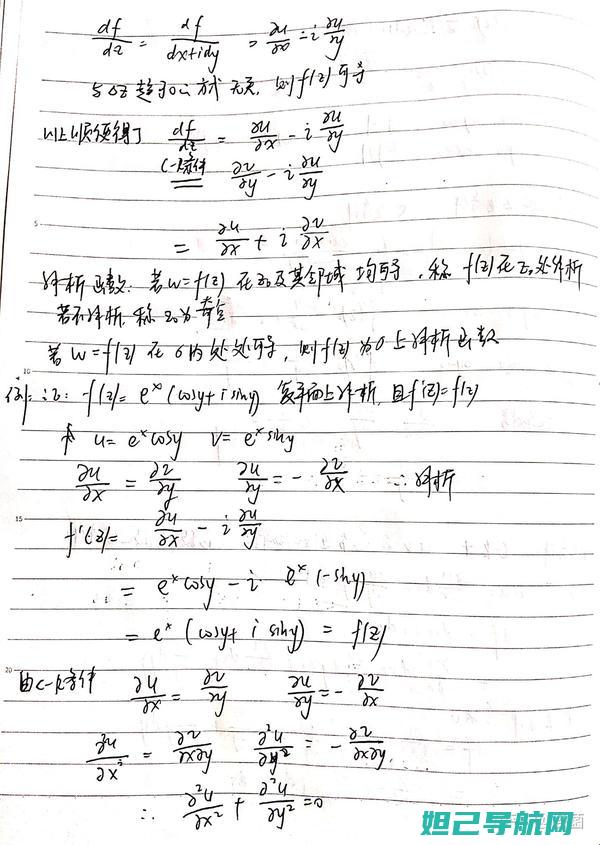 df/dz = df/(dx+idy) = ∂u/∂x - i ∂u/∂y
与Δz趋于0方式无关, 则f(z)可导
以上顺便得了 df/dz = ∂u/∂x - i ∂u/∂y
C-R条件 ∂v/∂y - i ∂u/∂y
5
= ∂u/∂x + i ∂v/∂x
解析函数: 若w=f(z) 在z₀及其邻域均可导, 称 f(z)在z₀处解析
若不解析, 称z₀为奇点
若 w=f(z) 在σ内处处可导, 则f(z)为σ上解析函数
10
例: 证: f(z)= eˣ(cosy+isiny) 复平面上解析, 且f'(z)=f(z)
u= eˣcosy v= eˣsiny
∂u/∂x = ∂v/∂y ∂u/∂y = - ∂v/∂x ∴解析
15
f'(z)= ∂u/∂x - i ∂u/∂y
= eˣcosy - i eˣ(-siny)
= eˣ(cosy+ i siny) = f(z)
20
由C-R条件 ∂u/∂x = ∂v/∂y ∂u/∂y = - ∂v/∂x
∂²u/∂x² = ∂v/∂x∂y ∂²u/∂y² = - ∂v/∂x∂y.
∴ ∂²u/∂x² + ∂²u/∂y² =0
妲己导航网